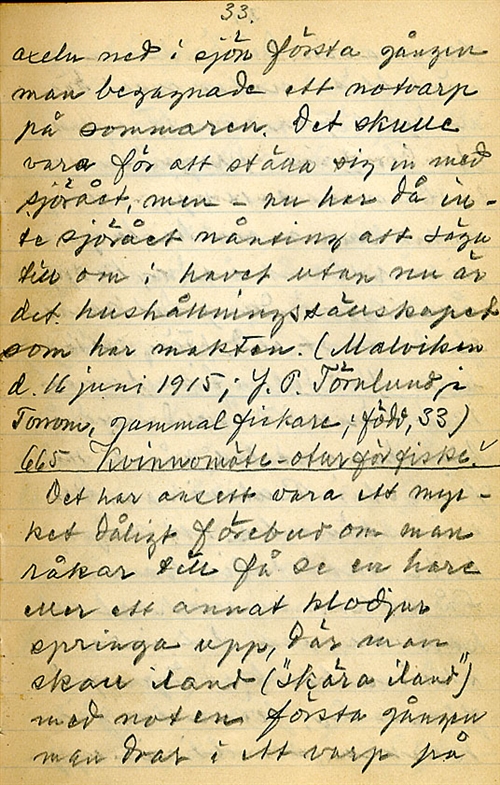 33.
axeln ned i sjön första gången
man begagnade ett notvarp
på sommaren. Det skulle
vara för att ställa sig in med
sjörået, men - nu har då in-
te sjörået nånting att säga
till om i havet utan nu är
det hushållningssällskapet
som har makten. (Malviken
d. 16 juni 1915; J. P. Törnlund i
Torrom, gammal fiskare; född, 33)
665 Kvinnomöte - otur för fiske.
Det har ansett vara ett myc-
ket dåligt förebud om man
råkar till få se en hare
eller ett annat klodjur
springa upp, där man
skall iland ("skära iland")
med noten första gången
man drar i ett varp på